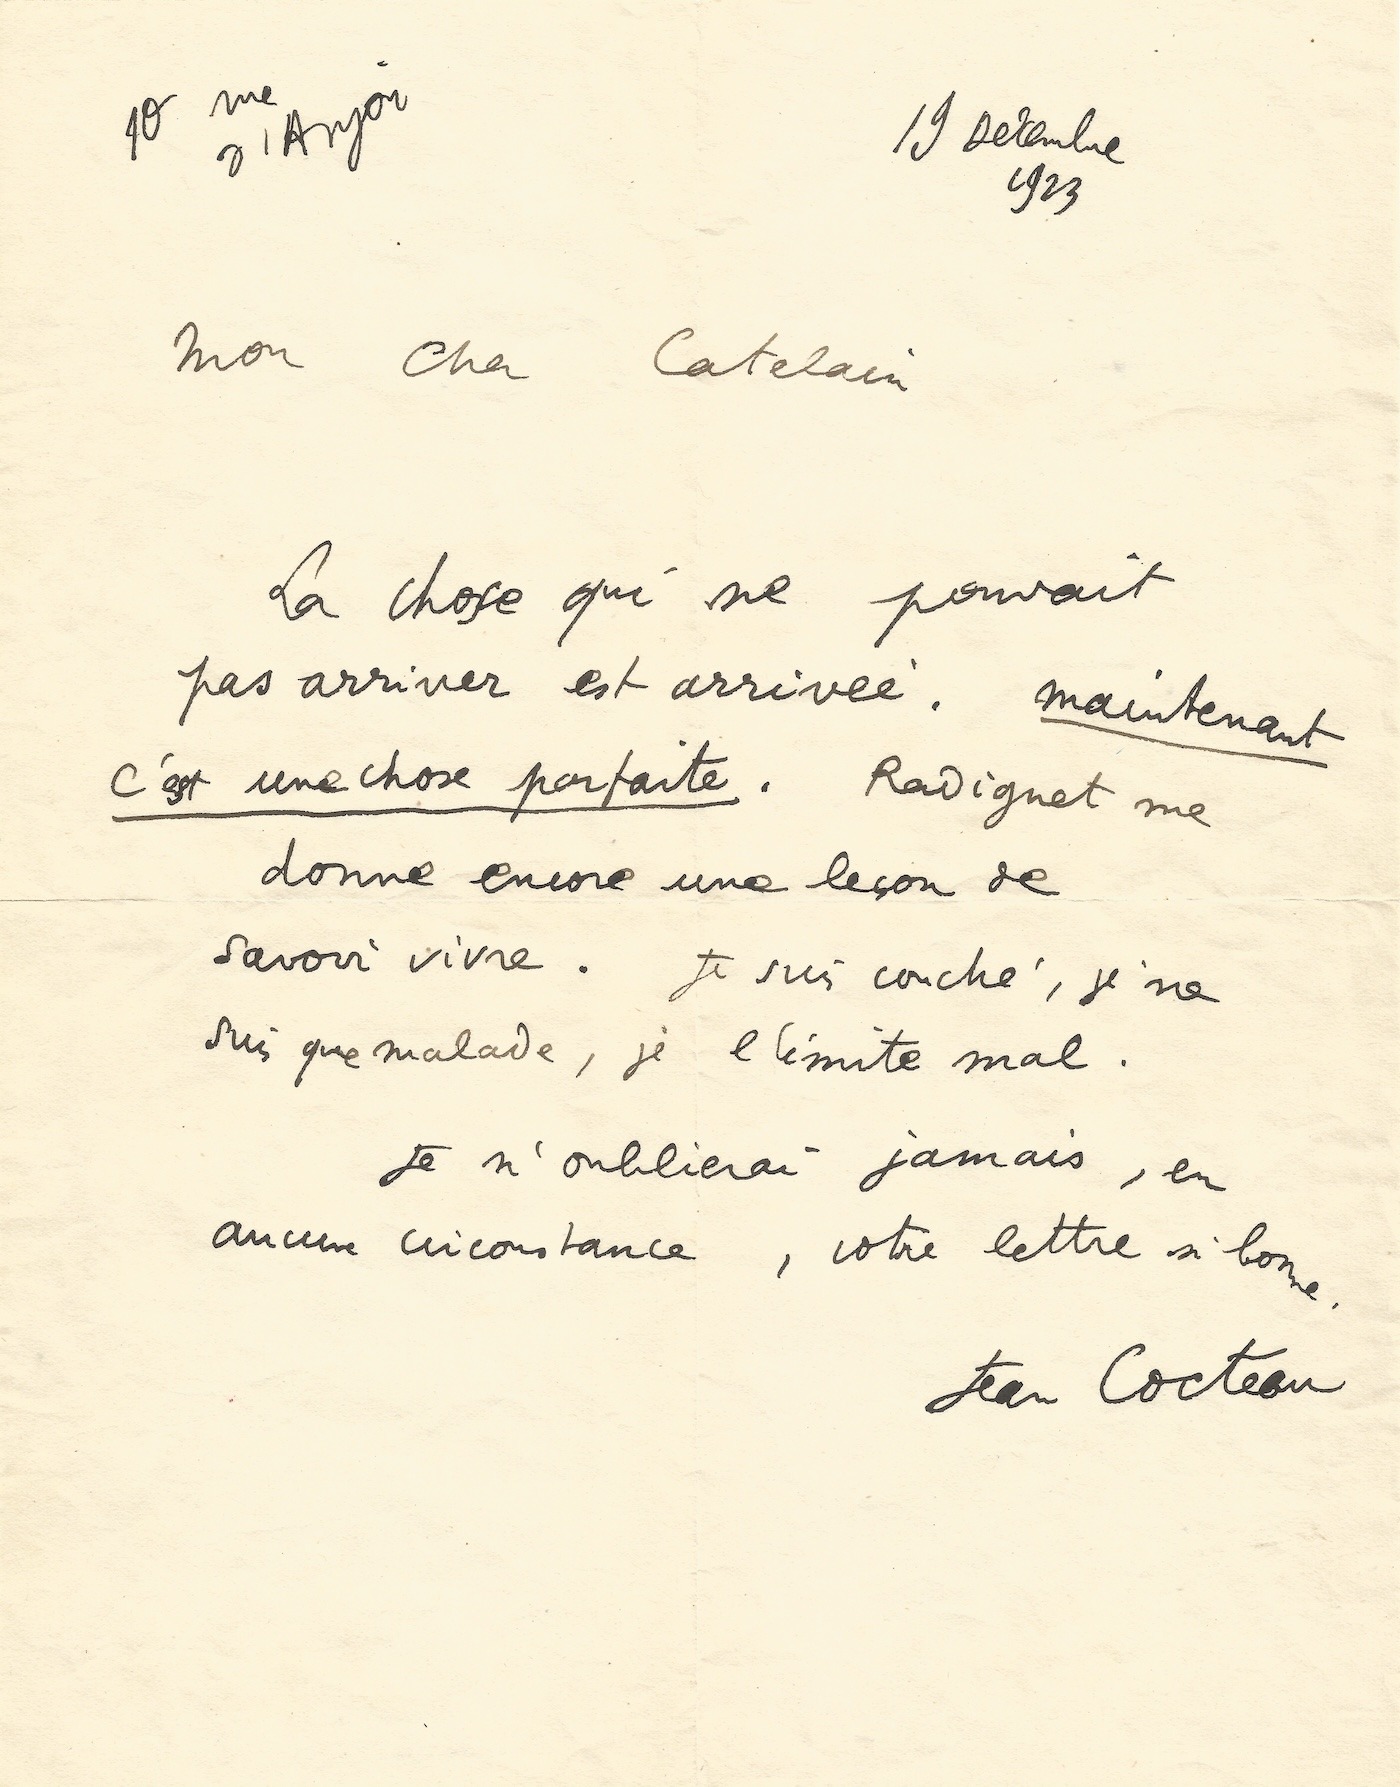 10 rue
d'Anjou
19 Décembre
1923
Mon cher Catelain
La chose qui ne pouvait
pas arriver est arrivée. maintenant
c'est une chose parfaite. Radiguet me
donne encore une leçon de
savoir vivre. Je suis couché, je ne
suis que malade, je l'imite mal.
Je n'oublierai jamais, en
aucune circonstance, votre lettre si bonne.
Jean Cocteau